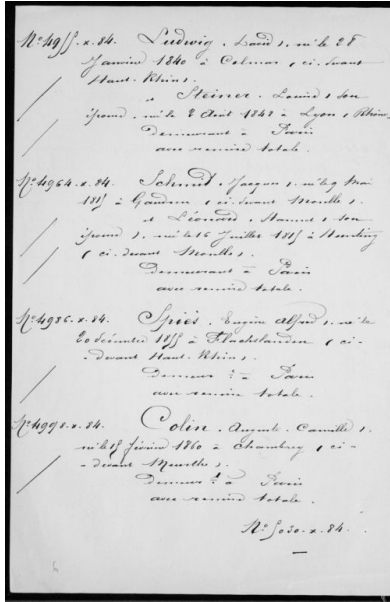 Nº 4955. x. 84. Ludwig (Louis), né le 28
Janvier 1840 à Colmar (ci-devant
Haut-Rhin).
et Steiner (Louise), son
épouse, née le 2 Août 1842 à Lyon (Rhône).
Demeurant à Paris
avec remise totale.
Nº 4964. x. 84. Schmit (Jacques), né le 9 Mai
1815 à (ci-devant Moselle).
et Léonard, son
épouse, née le 16 Juillet 1815 à
(ci-devant Moselle).
Demeurant à Paris
avec remise totale.
Nº 4986. x. 84. Spies (Eugène Alfred), né le
20 décembre 1855 à Flachslanden (ci-
-devant Haut-Rhin).
Demeurt à Paris
avec remise totale.
Nº 4998. x. 84. Colin (Auguste Camille),
né le 15 février 1860 à Chambrey (ci-
-devant Meurthe).
Demeurt à Paris
avec remise totale.
Nº 5030. x. 84.